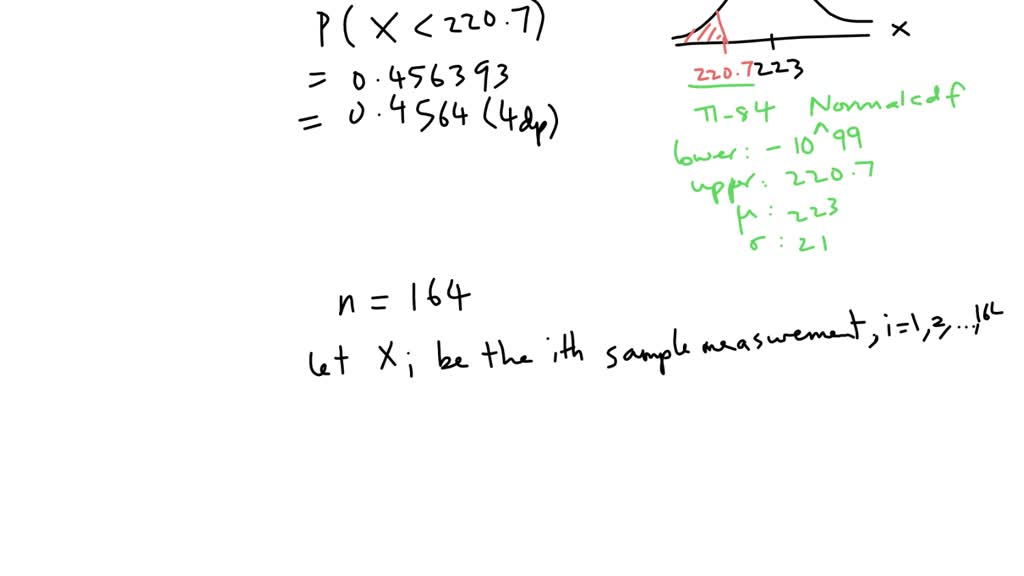 P(X < 220.7)
= 0.456393
= 0.4564 (4dp)
X
220.7 223
TI-84 Normalcdf
lower: -10^99
upper: 220.7
μ: 223
σ: 21
n = 164
Let Xi be the ith sample measurement, i=1,2,...,164